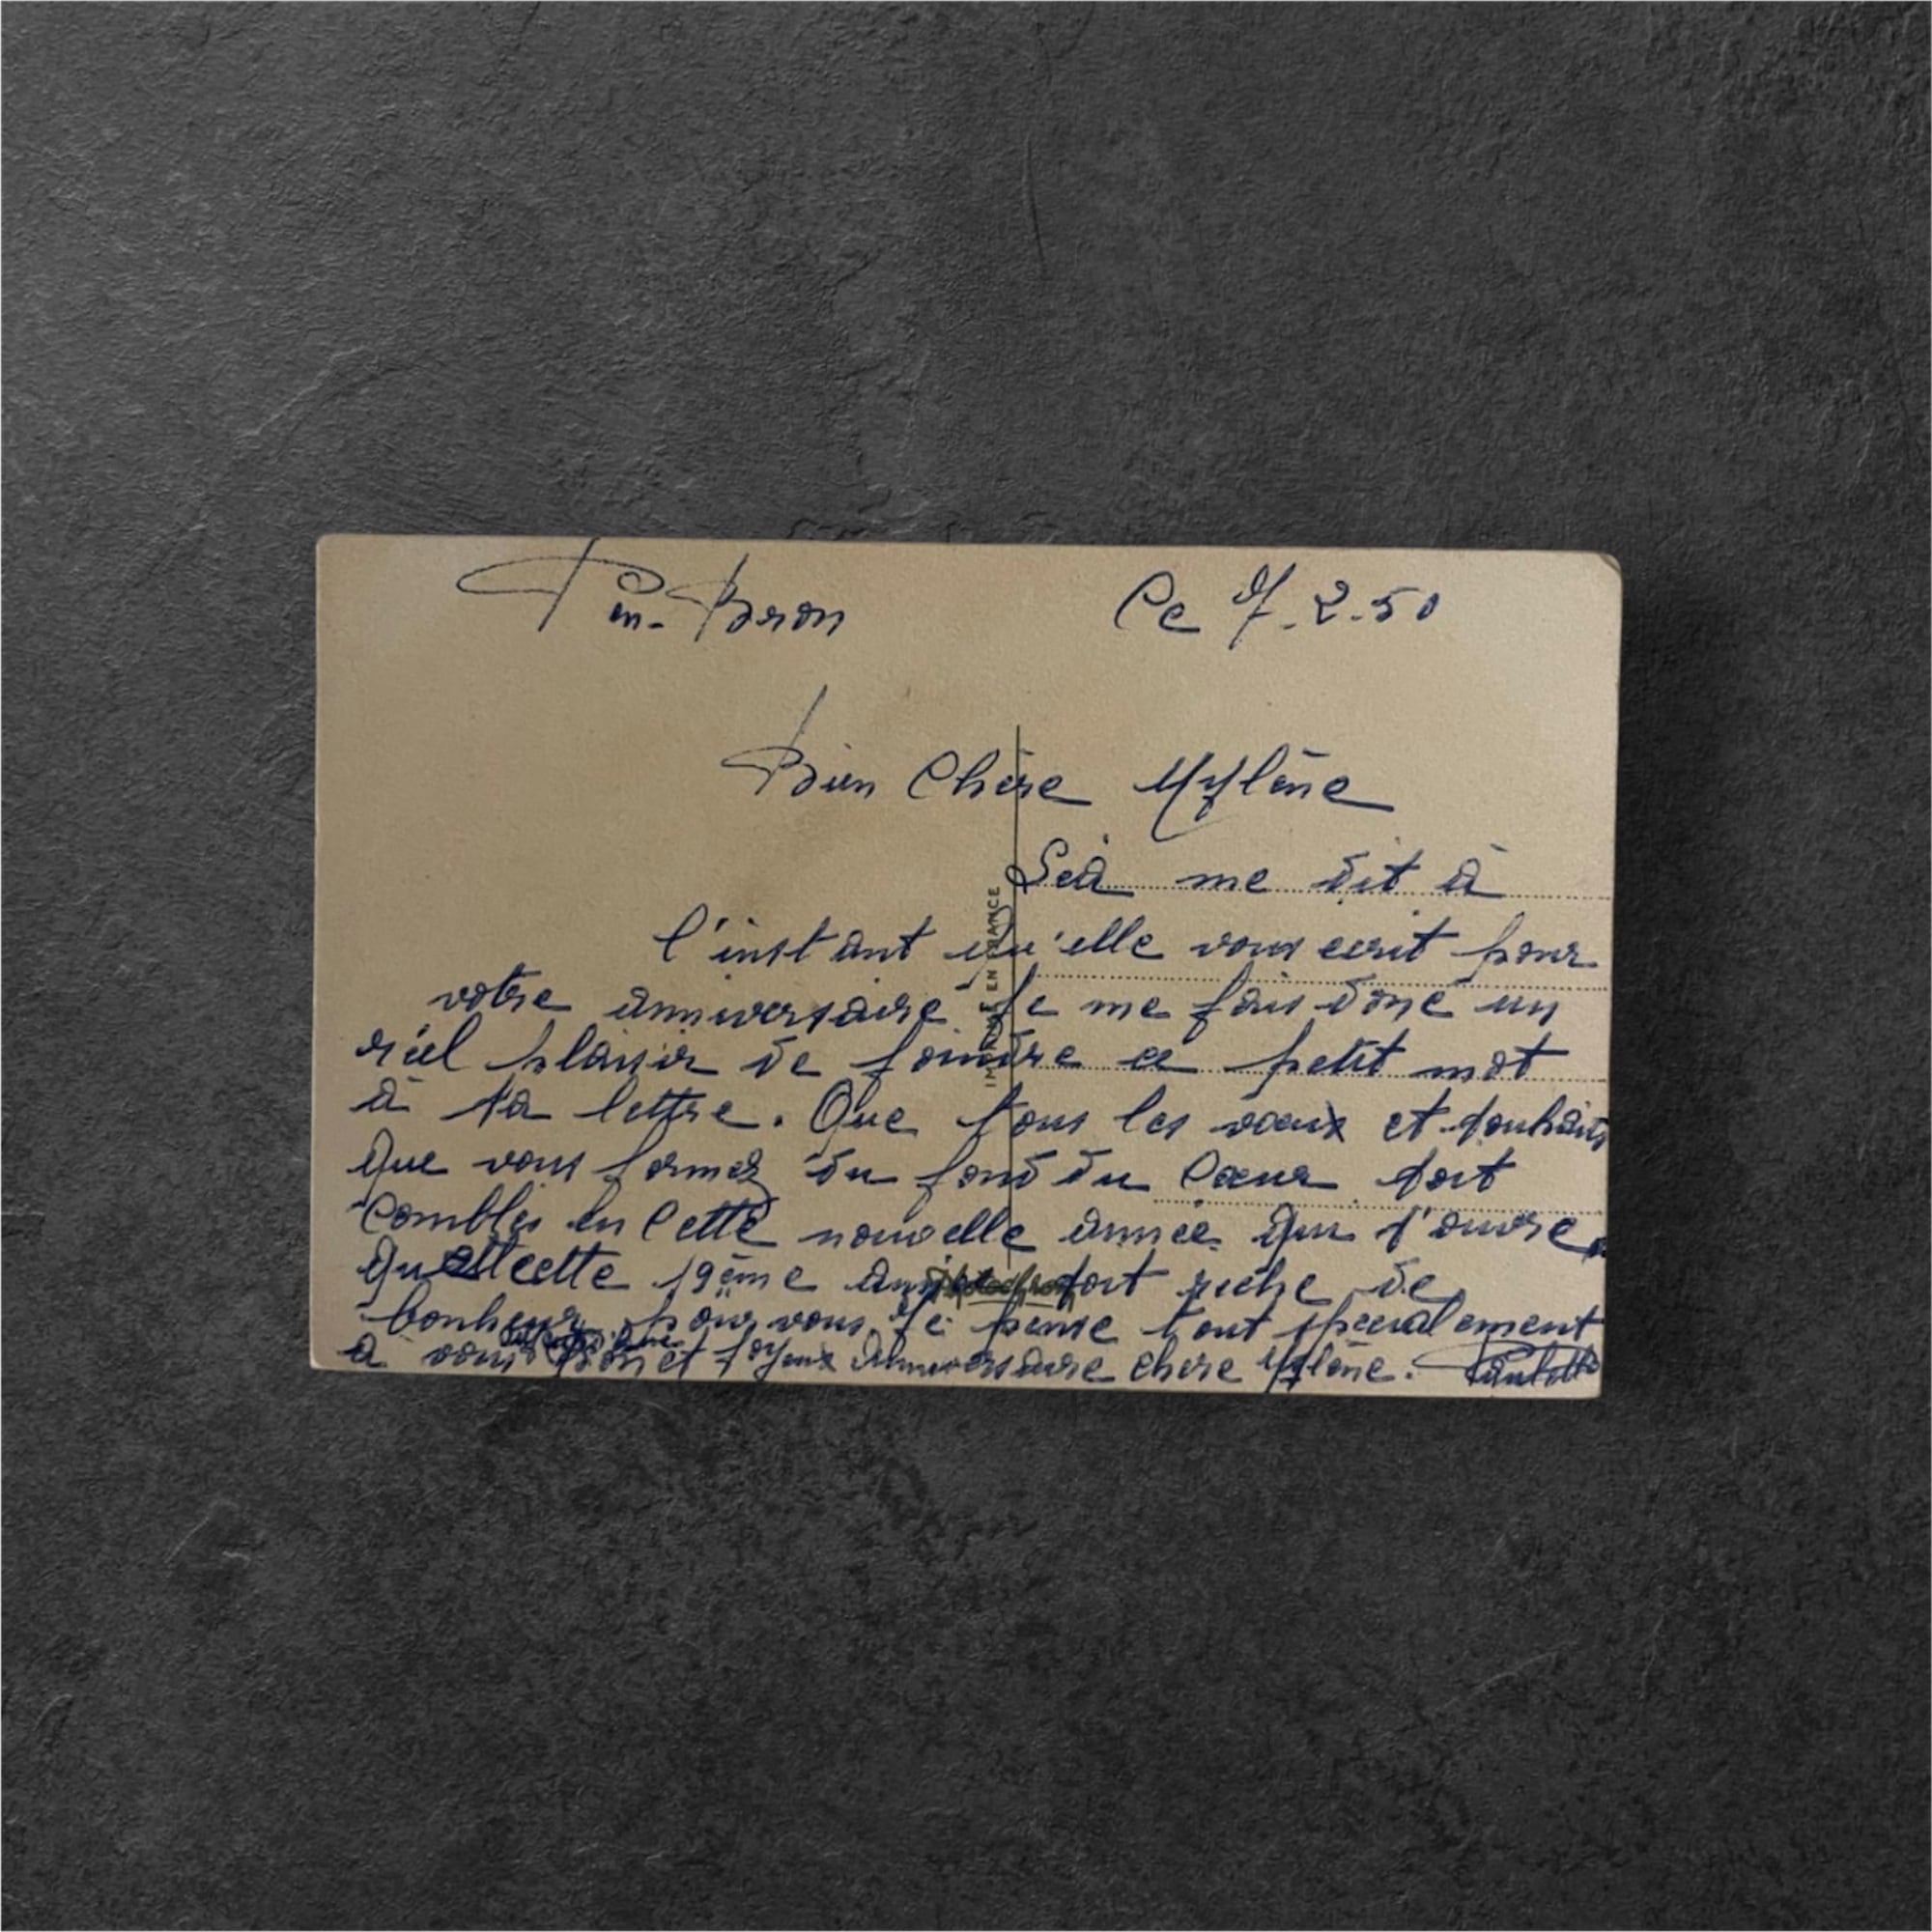 Pin-Bron Ce 7.2.50
Bien Chère Mylène
Séà me dit à
l'instant qu'elle vous écrit pour
votre anniversaire Je me fais donc un
réel plaisir de joindre ce petit mot
à sa lettre. Que tous les voeux et souhaits
que vous formez du fond du Coeur soit
Comblés en Cette nouvelle année qui s'ouvre
que cette 19ème année soit riche de
bonheur pour vous. Je pense tout specialement
à vous Bon et Joyeux Anniversaire chère Mylène. Paulette
IMPRIMÉ EN FRANCE